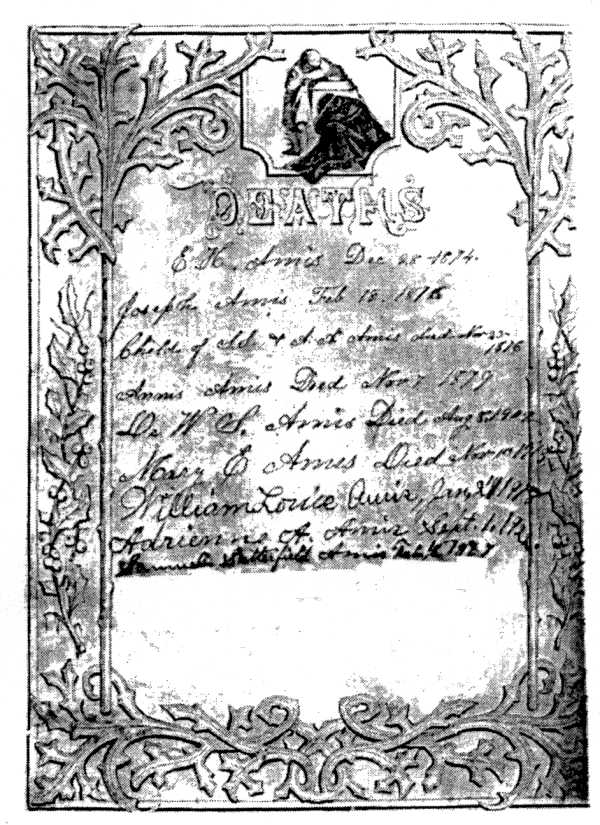 DEATHS
E. H. Amis Dec 28 1874.
Joseph Amis Feb 18. 1876
Child of & A. A Amis died Nov 23-
1876
Annis Amis Died Nov 7 1879
Dr W. S. Amis Died Aug 8.
Mary E Ames Died Nov 10
William Louice Amis, Jan
Adrienne A. Amis Sept. 1.
Samuel Amis Feb 1927